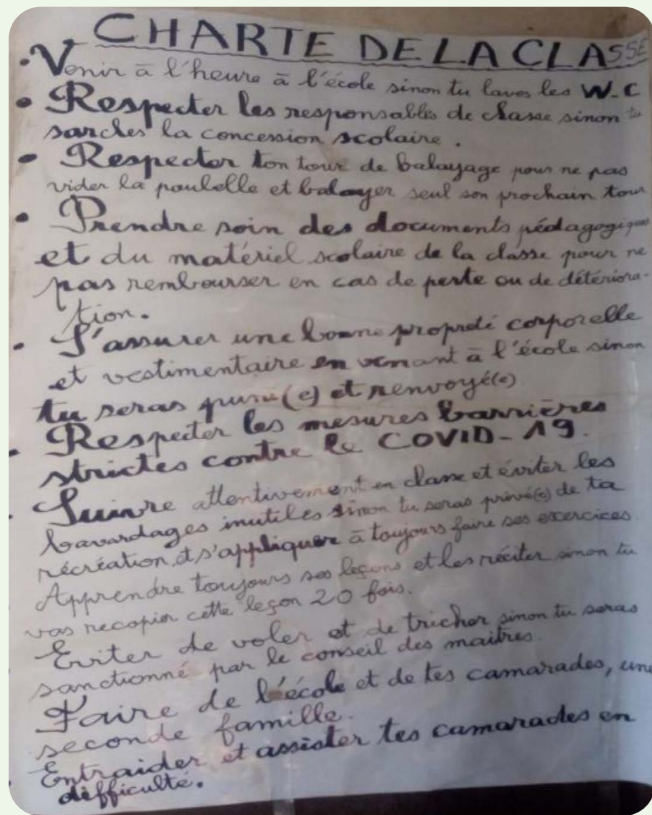 CHARTE DE LA CLASSE
• Venir à l'heure à l'école sinon tu laves les W-C
• Respecter les responsables de classe sinon tu
sarcles la concession scolaire.
• Respecter ton tour de balayage pour ne pas
vider la poubelle et balayer seul son prochain tour
• Prendre soin des documents pédagogiques
et du matériel scolaire de la classe pour ne
pas rembourser en cas de perte ou de détériora-
tion.
• S'assurer une bonne propreté corporelle
et vestimentaire en venant à l'école sinon
tu seras puni(e) et renvoyé(e)
• Respecter les mesures barrières
strictes contre le COVID-19.
• Suivre attentivement en classe et éviter les
bavardages inutiles sinon tu seras privé(e) de ta
récréation, et s'appliquer à toujours faire ses exercices
Apprendre toujours ses leçons et les réciter sinon tu
vas recopier cette leçon 20 fois.
Eviter de voler et de tricher sinon tu seras
sanctionné par le conseil des maîtres.
Faire de l'école et de tes camarades, une
seconde famille.
Entraider et assister tes camarades en
difficulté.